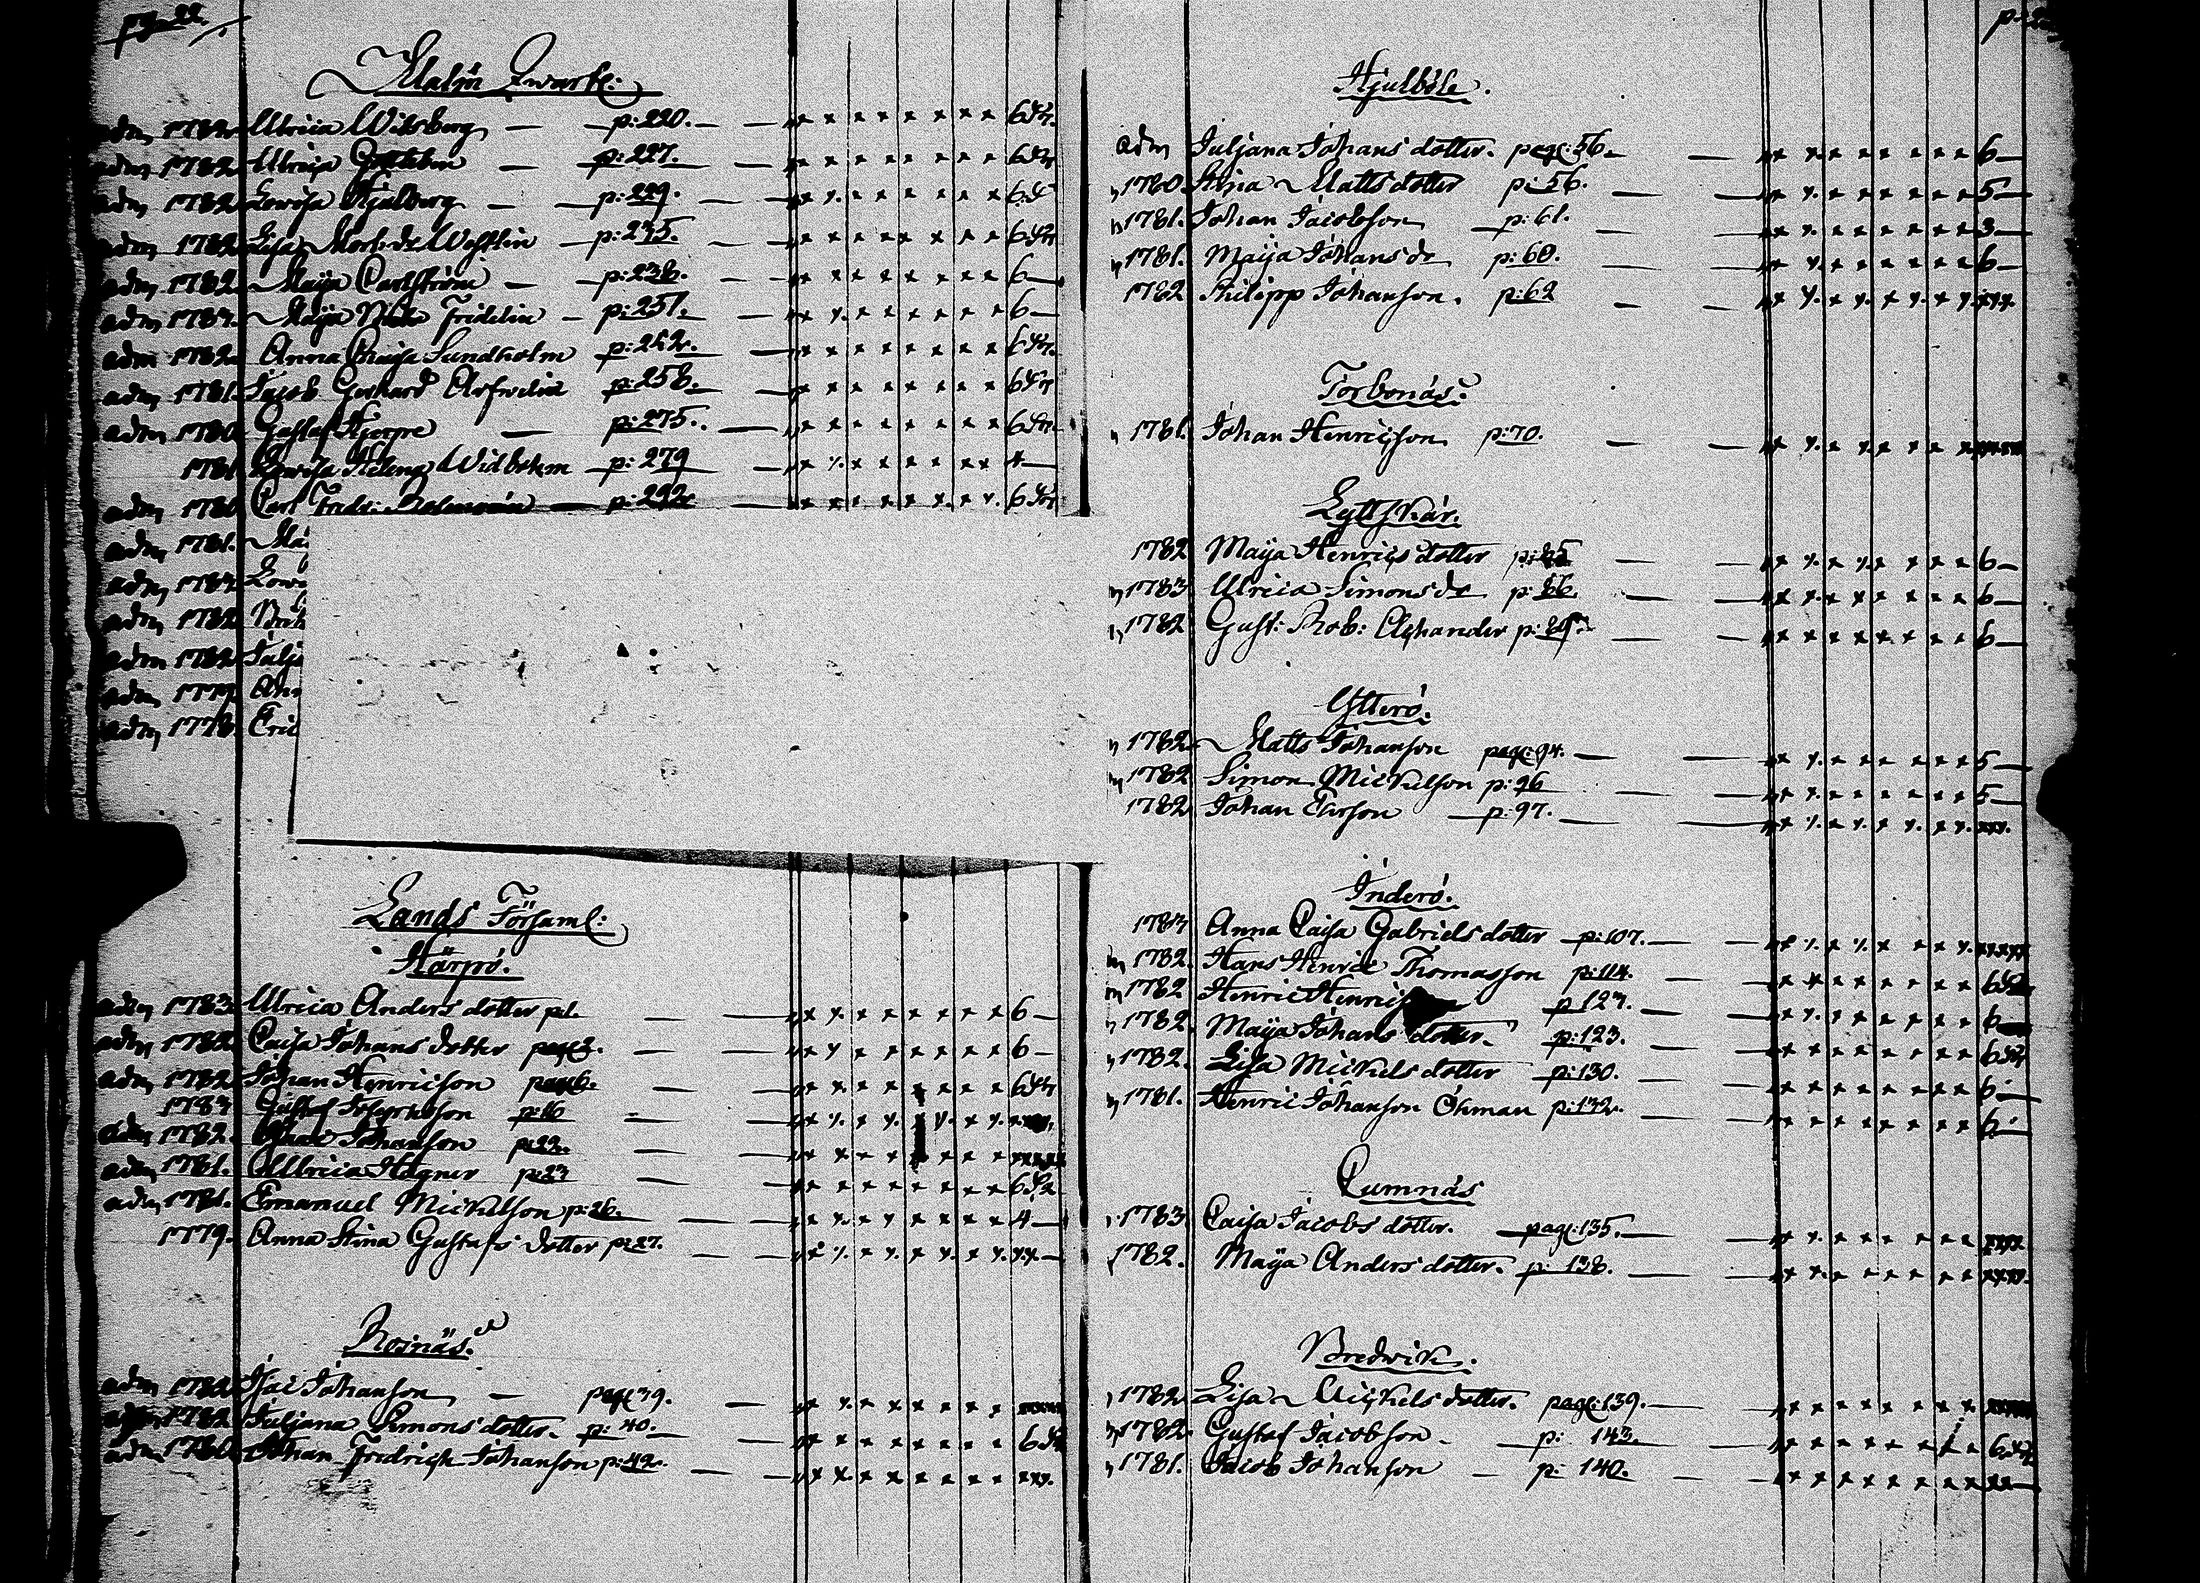 pag. 22.
Malm Qwarte:
adm 1782 Ulrica Widberg p: 220. 6
adm 1782 Ulrica p: 227. 6
adm 1782 Lovisa Hjulberg p: 229. 6
adm 1782 Lisa p: 235. 6
adm 1782 Maija Carlström p: 238. 6
adm 1783. Maija Fridelin p: 251. 6
adm 1782 Anna Caisa Sundholm p: 252. 6
adm 1781. Jacob Gerhard p: 258. 6
adm 1780 Gustaf Hjerpe p: 275. 6
1781 Lovisa Helena Widbohm p: 279 4
adm 1780 Carl Fredr: p: 292 6
adm 1781.
adm 1783
adm 1782
adm 1782
adm 1777
adm 1778 Eric
Lands Församl:
Härpö.
adm 1783. Ulrica Anders dotter p:1. 6
adm 1782. Caisa Johans dotter page 3. 6
adm 1782 Johan Henricson page 6. 6
1783 Gustaf p: 16
adm 1782. Johanson p: 22.
adm 1781. Ullrica Hagner p: 23 6
adm 1781. Emanuel Mickelson p: 26. 4
1779. Anna Stina Gustafs dotter p: 27.
Rosnäs.
adm 1782 Isac Johanson page 39.
adm 1782 Juljana Simons dotter. p: 40. 6
adm 1780 Johan Fredrich Johanson p: 42.
Hjulböle.
adm Juljana Johans dotter. page: 56. 6
1780 Stina Matts dotter p: 56. 5
1781. Johan Jacobson p: 61. 3
1781. Maija Johans dr p: 60. 6
1782 Philipp Johanson. p: 62
Torbonäs.
1781. Johan Henricson p: 70.
Lyttskär.
1782 Maija Henrics dotter p: 6
1783 Ulrica Simons dr p: 86. 6
1782 Gust: Rob: Alexander p: 6
Ytterö.
1782 Matts Johanson page: 94. 5
1782 Simon Mickelson p: 96 5
1782 Johan Ersson p: 97.
Inderö.
1783 Anna Caisa Gabriels dotter p: 107.
1782. Hans Henric Thomasson p: 114. 6
1782 Henric p: 123. 6
1782. Maija Johans dotter. p: 123. 6
1782. Lisa Mickels dotter p: 130. 6
1781. Henric Johanson Öhman p: 132. 6
Cumnäs
1783 Caisa Jacobs dotter. page: 135.
1782. Maija Anders dotter. p: 138.
Bredvik.
1782 Lisa Mickels dotter. page: 139.
1782. Gustaf Jacobson p: 143. 6
1781. Jacob Johanson p: 140.